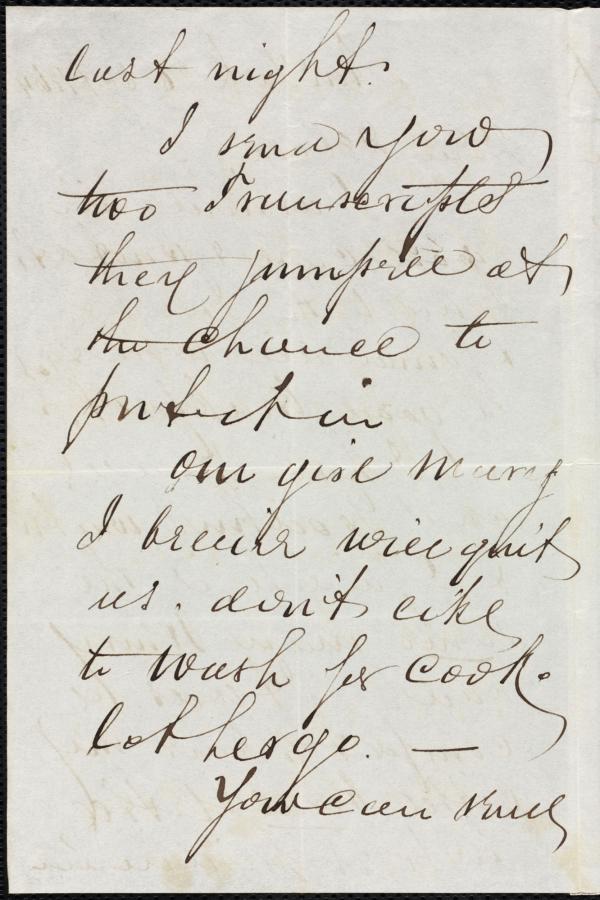 last night.
I send you
two Transcripts
they jumpted at
the chance to
put it in
Our girl Mary
I believe will quit
us. don't like
to wash for cook.
let her go. —
You can send